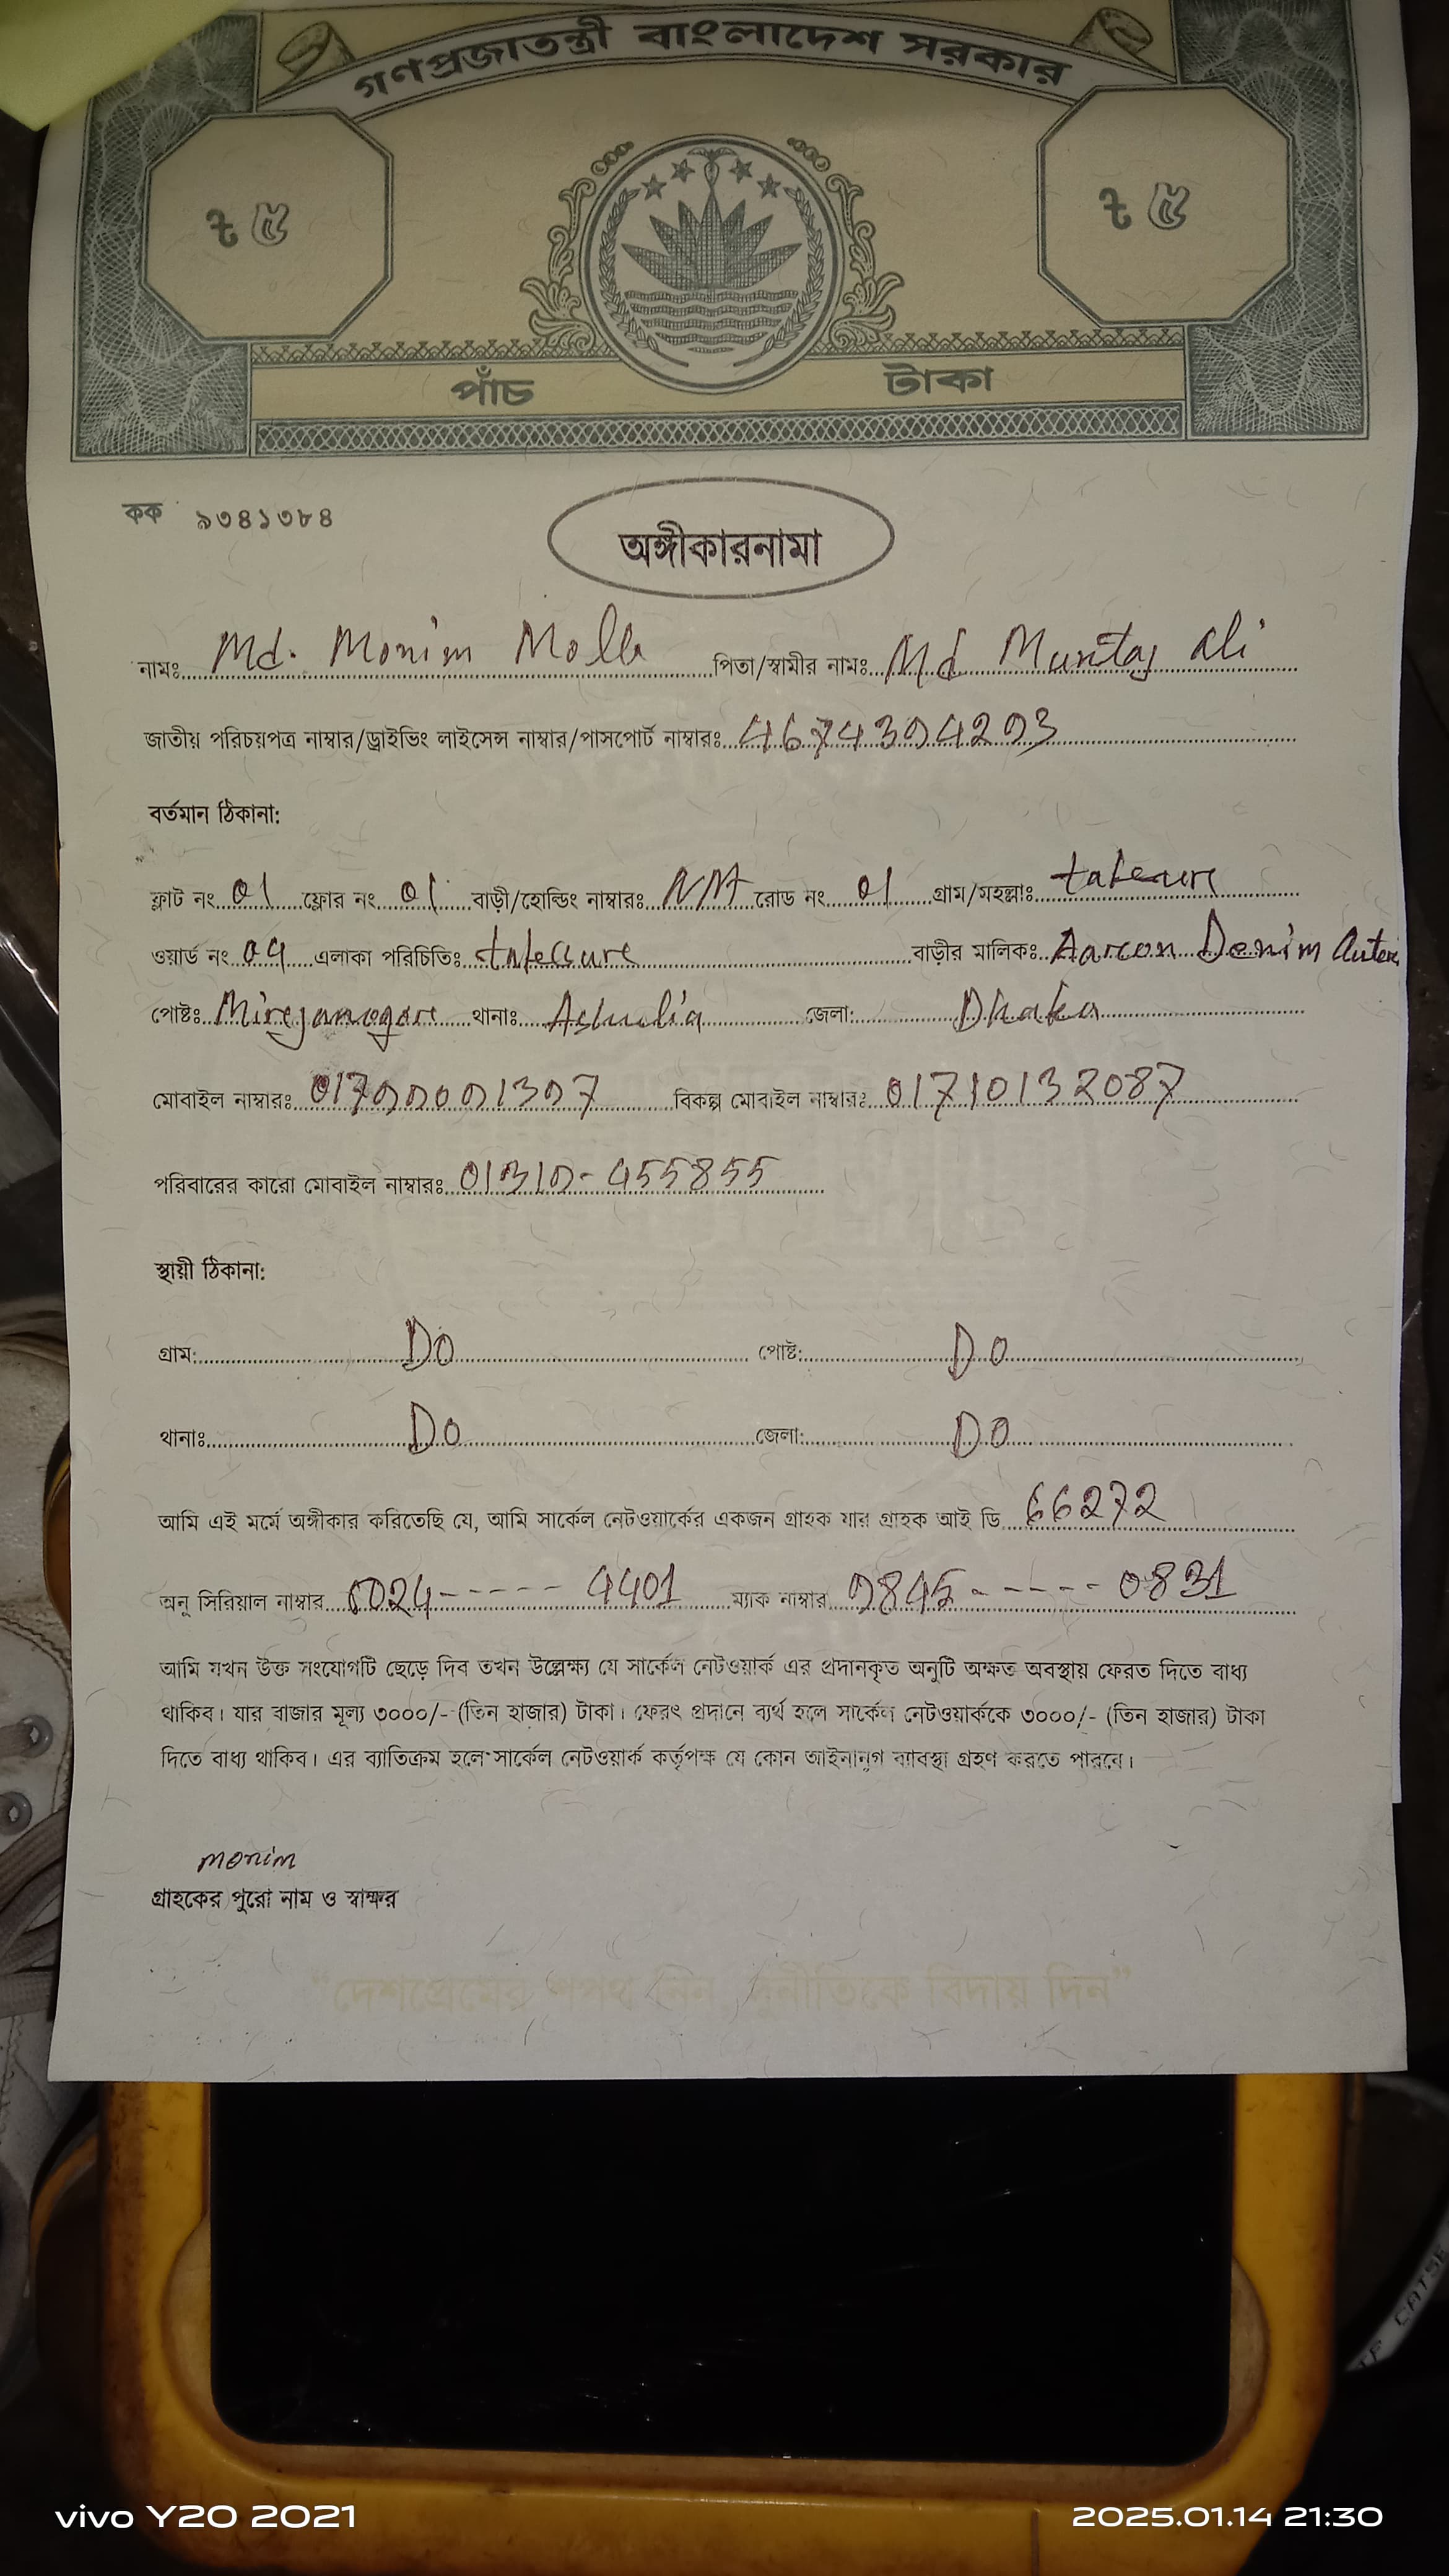 গণপ্রজাতন্ত্রী বাংলাদেশ সরকার
৳ ৫ ৳ ৫
পাঁচ টাকা
কক ৯৩৪১৩৮৪
অঙ্গীকারনামা
নামঃ Md. Monim Molla পিতা/স্বামীর নামঃ Md Muntaj Ali
জাতীয় পরিচয়পত্র নাম্বার/ড্রাইভিং লাইসেন্স নাম্বার/পাসপোর্ট নাম্বারঃ
বর্তমান ঠিকানা:
ফ্লাট নং 01 ফ্লোর নং 01 বাড়ী/হোল্ডিং নাম্বারঃ N/A রোড নং 01 গ্রাম/মহল্লাঃ
ওয়ার্ড নং 04 এলাকা পরিচিতিঃ বাড়ীর মালিকঃ Denim
পোষ্টঃ থানাঃ Ashulia জেলা: Dhaka
মোবাইল নাম্বারঃ বিকল্প মোবাইল নাম্বারঃ 01710132087
পরিবারের কারো মোবাইল নাম্বারঃ 01310-455855
স্থায়ী ঠিকানা:
গ্রাম: DO পোষ্ট: DO
থানাঃ DO জেলা: DO
আমি এই মর্মে অঙ্গীকার করিতেছি যে, আমি সার্কেল নেটওয়ার্কের একজন গ্রাহক যার গ্রাহক আই ডি 66272
অনু সিরিয়াল নাম্বার 4401 ম্যাক নাম্বার 0831
আমি যখন উক্ত সংযোগটি ছেড়ে দিব তখন উল্লেক্ষ্য যে সার্কেল নেটওয়ার্ক এর প্রদানকৃত অনুটি অক্ষত অবস্থায় ফেরত দিতে বাধ্য
থাকিব। যার বাজার মূল্য ৩০০০/- (তিন হাজার) টাকা। ফেরৎ প্রদানে ব্যর্থ হলে সার্কেল নেটওয়ার্ককে ৩০০০/- (তিন হাজার) টাকা
দিতে বাধ্য থাকিব। এর ব্যাতিক্রম হলে সার্কেল নেটওয়ার্ক কর্তৃপক্ষ যে কোন আইনানুগ ব্যাবস্থা গ্রহণ করতে পারবে।
monim
গ্রাহকের পুরো নাম ও স্বাক্ষর
"দেশপ্রেমের শপথ নিন দুর্নীতিকে বিদায় দিন"
vivo Y20 2021 2025.01.14 21:30